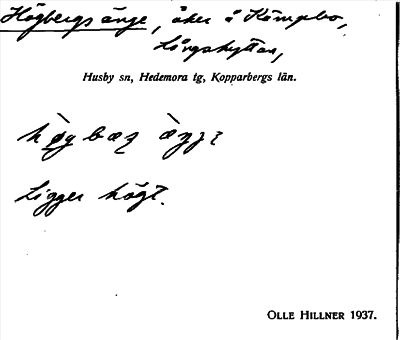 Högbergs änge, åker å Kämpebo,
Långshyttan,
Husby sn, Hedemora tg, Kopparbergs län.
Ligger högt.
OLLE HILLNER 1937.